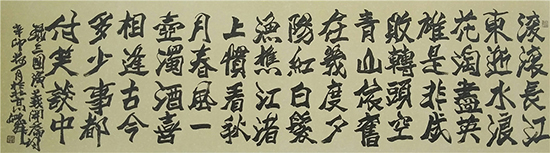 滚滚長江
東逝水浪
花淘盡英
雄是非成
敗轉頭空
青山依舊
在幾度夕
陽紅白髮
漁樵江渚
上慣看秋
月春風一
壺濁酒喜
相逢古今
多少事都
付笑談中
錄三國演義開篇詞
辛卯